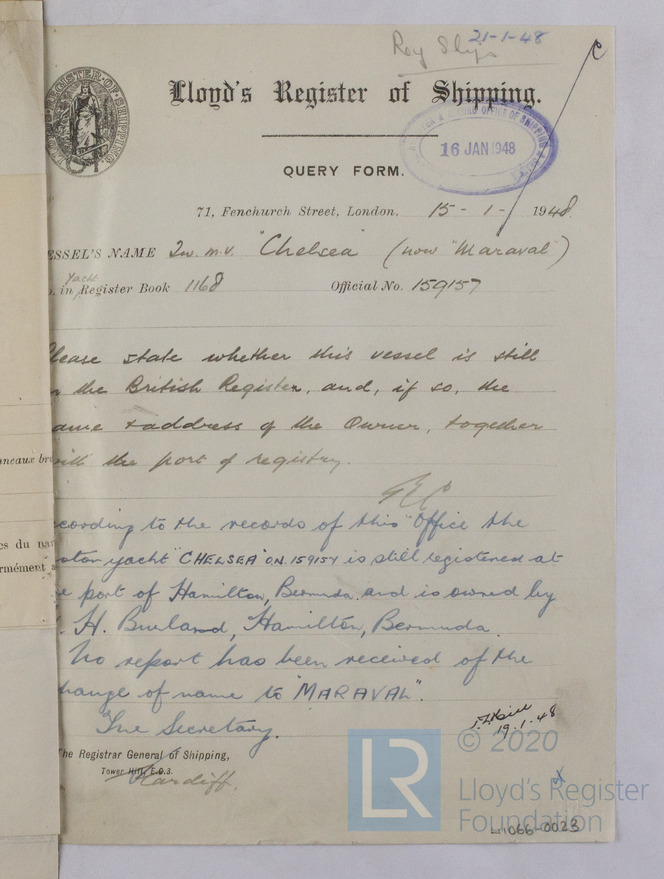 Reg Ships 21-1-48
C
Lloyd's Register of Shipping.
OFFICE OF SHIPPING
16 JAN 1948
QUERY FORM.
71, Fenchurch Street, London. 15-1-1948.
ESSEL'S NAME Tw. m.v. "Chelsea" (now "Maraval")
Yacht
o. in Register Book 1168 Official No. 159157
lease state whether this vessel is still
the British Register, and, if so, the
ame & address of the Owner, together
ith the port of registry.
ccording to the records of this Office the
otor yacht "CHELSEA" O.N. 159157 is still registered at
e port of Hamilton, Bermuda and is owned by
H. Burland, Hamilton, Bermuda.
No report has been received of the
hange of name to "MARAVAL".
The Secretary.
19.1.48
The Registrar General of Shipping,
Tower Hill, E.C.3.
Cardiff.
aneaux br
es du na
rmément a
LR
© 2020
Lloyd's Register
Foundation
066-0023